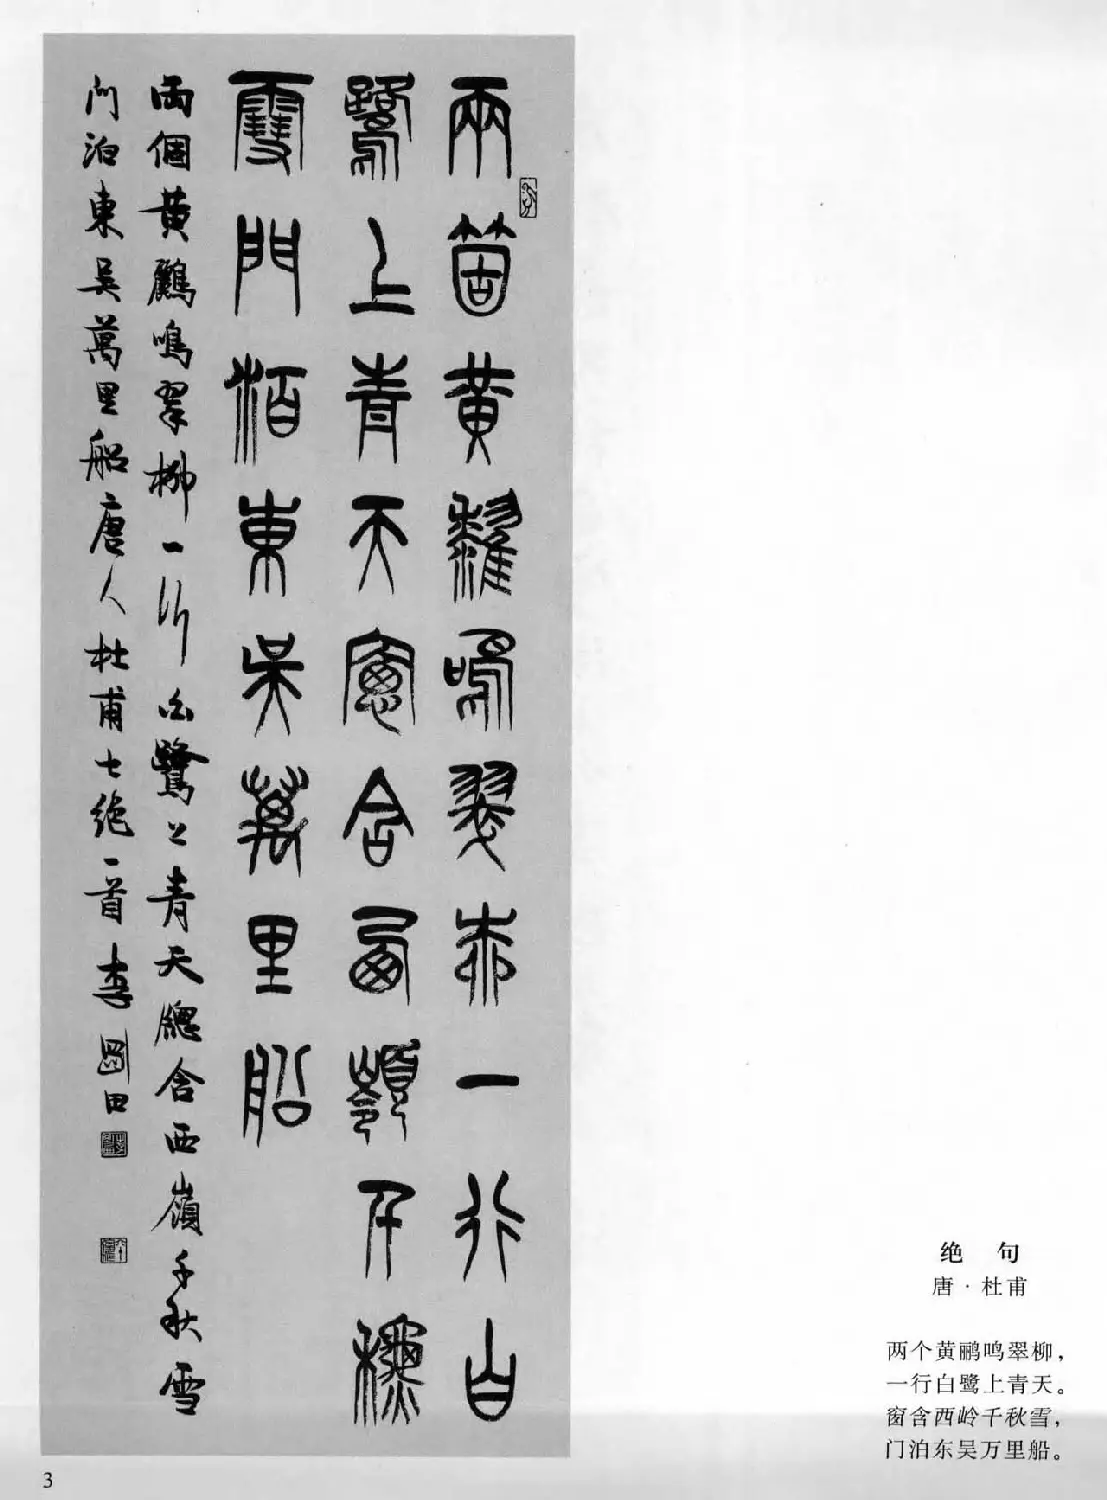 兩箇黃鸝鳴翠柳一行白
鷺上青天窻含西嶺千秋
雪門泊東吳萬里船
兩個黃鸝鳴翠柳一行白鷺上青天牕含西嶺千秋雪
門泊東吳萬里船唐人杜甫七絕一首李剛田
绝 句
唐·杜甫
两个黄鹂鸣翠柳，
一行白鹭上青天。
窗含西岭千秋雪，
门泊东吴万里船。
3